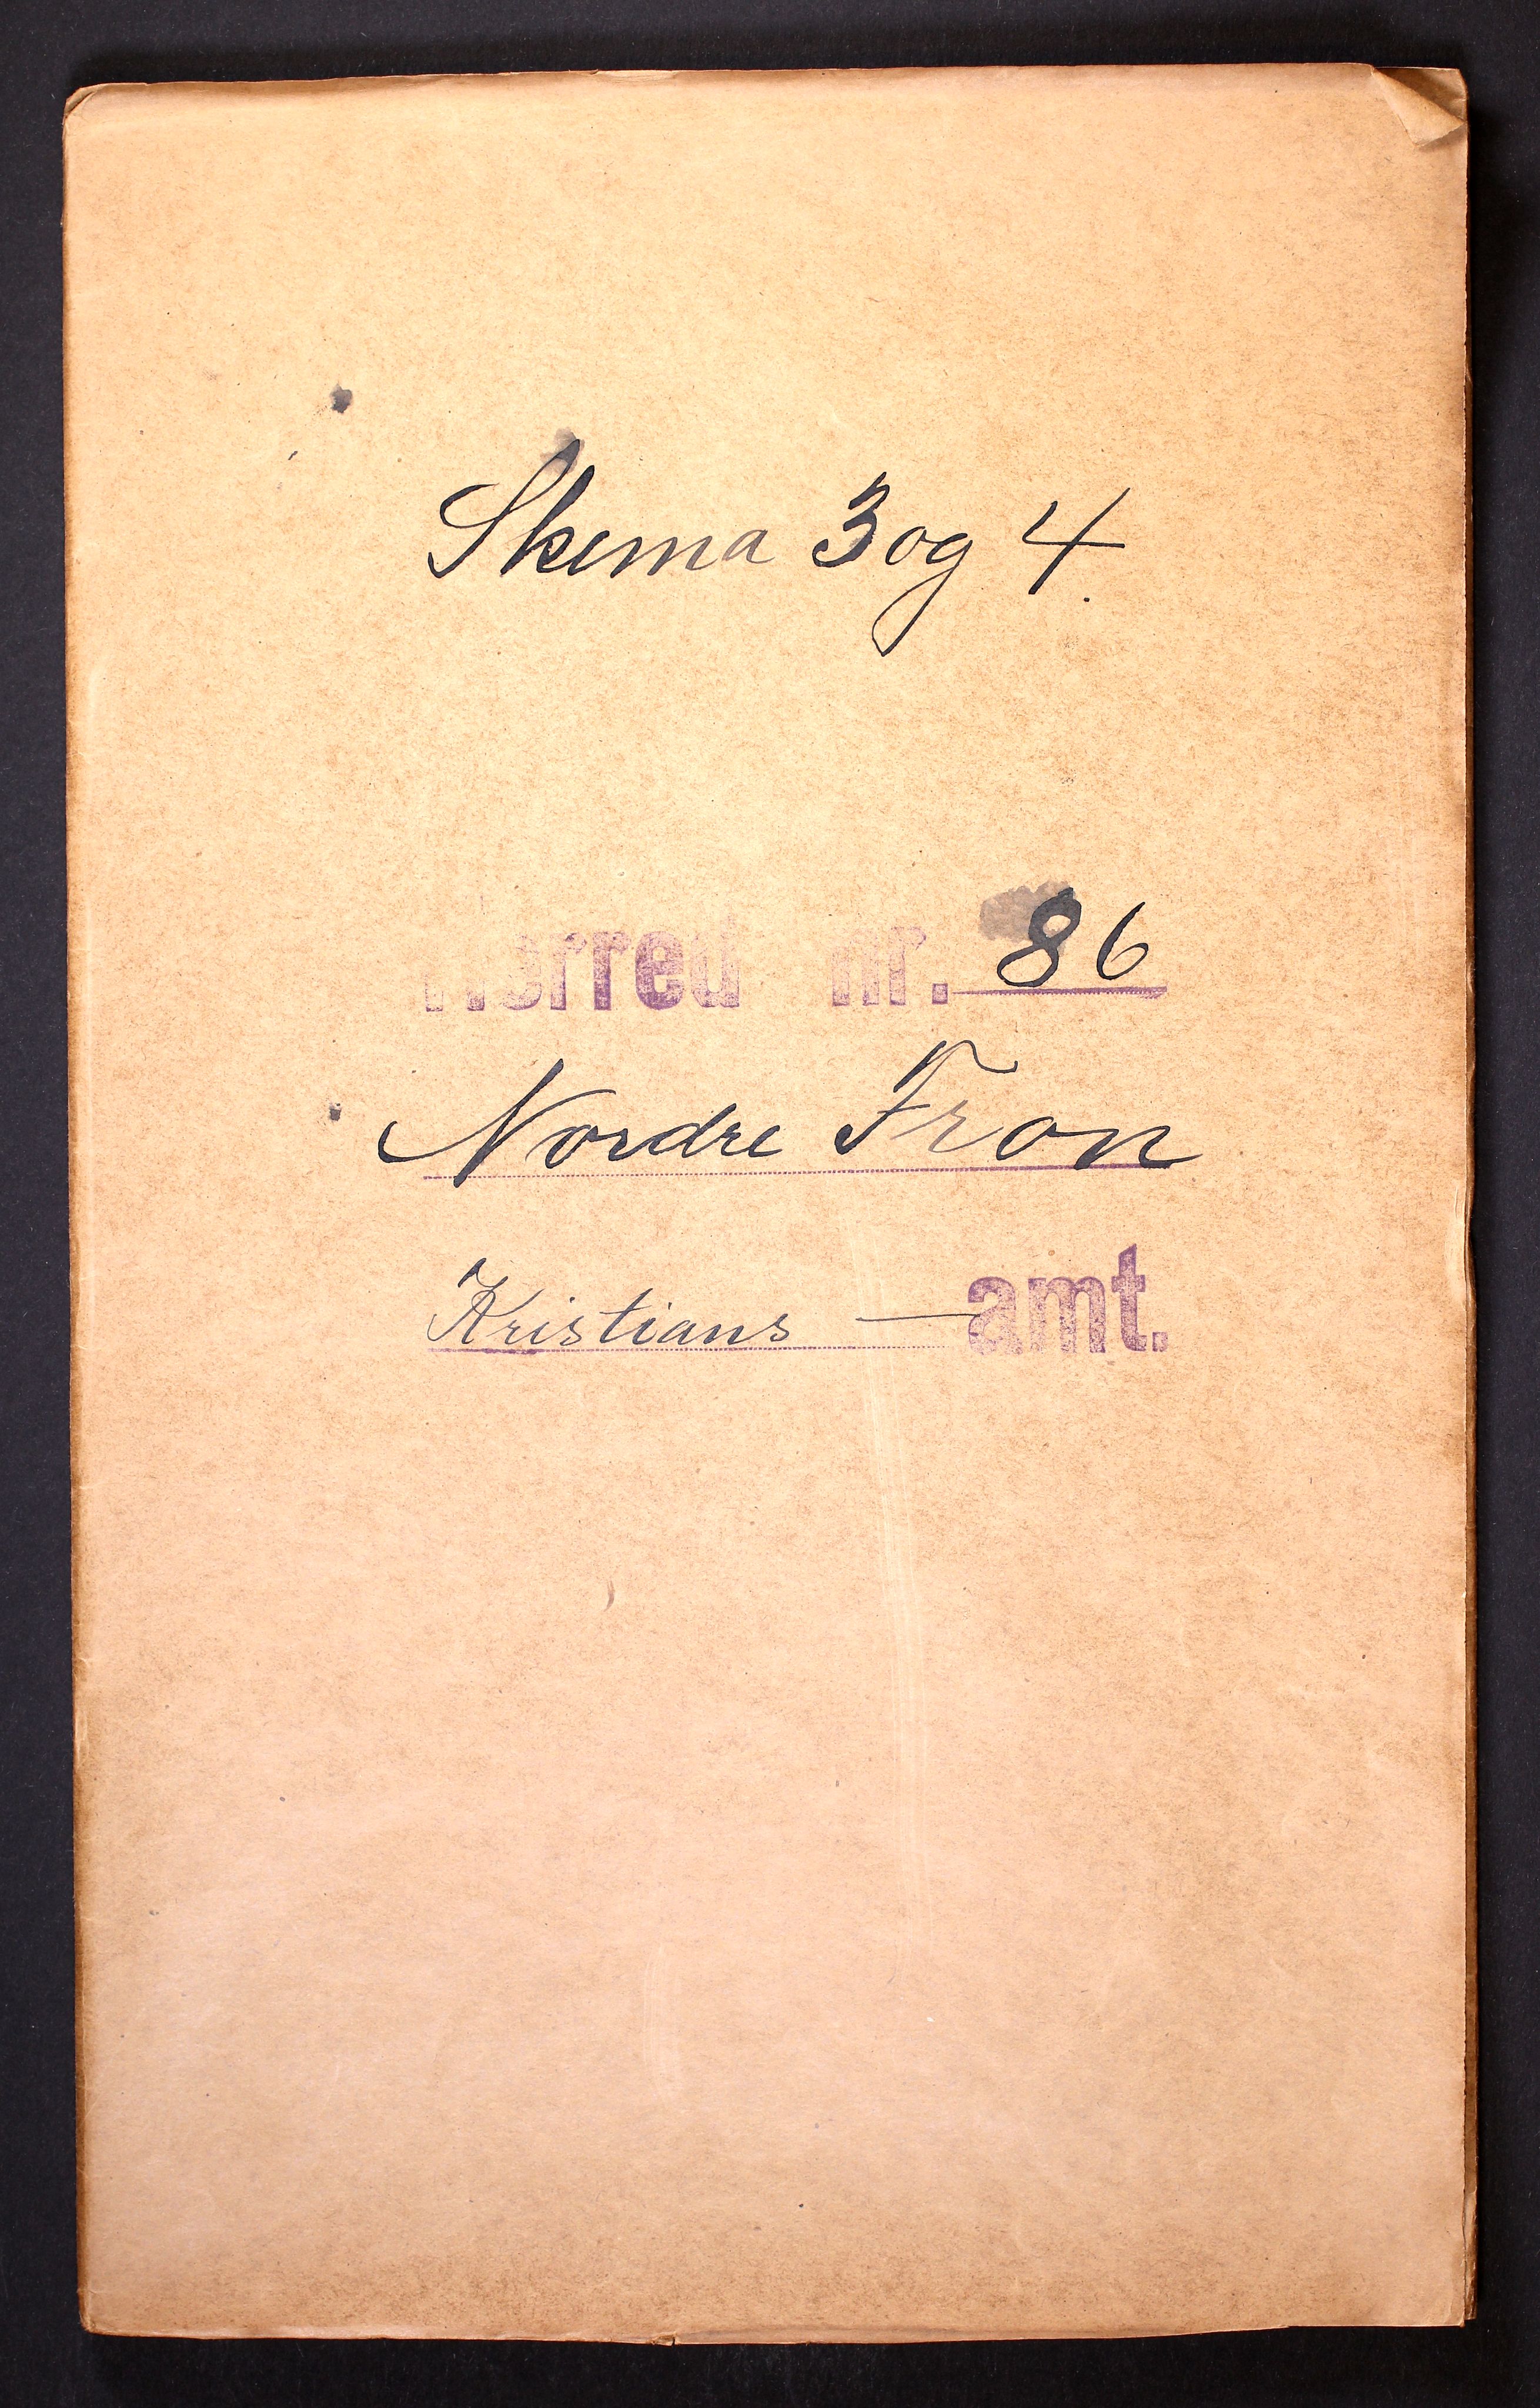 Skema 3 og 4.
Herred nr. 86
Nordre Fron
Kristians — amt.